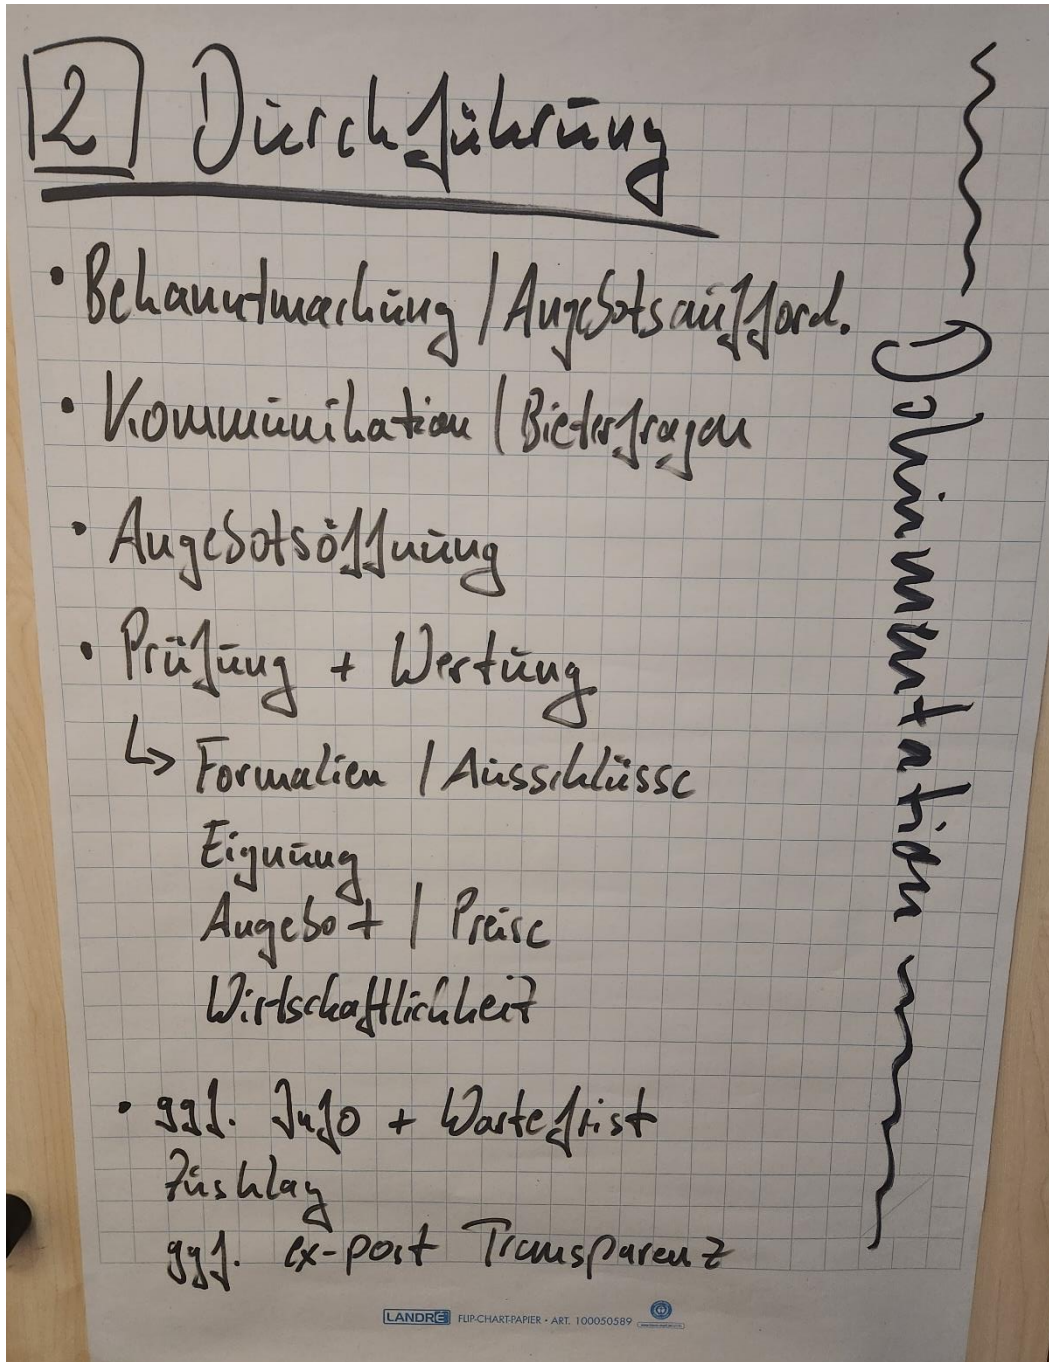 2 Durchführung
• Bekanntmachung / Angebotsaufford.
• Kommunikation / Bieterfragen
• Angebotsöffnung
• Prüfung + Wertung
↳ Formalien / Ausschlüsse
Eignung
Angebot / Preise
Wirtschaftlichkeit
• ggf. Info + Wartefrist
Zuschlag
ggf. ex-post Transparenz
Dokumentation
LANDRÉ FLIP-CHART-PAPIER • ART. 100050589